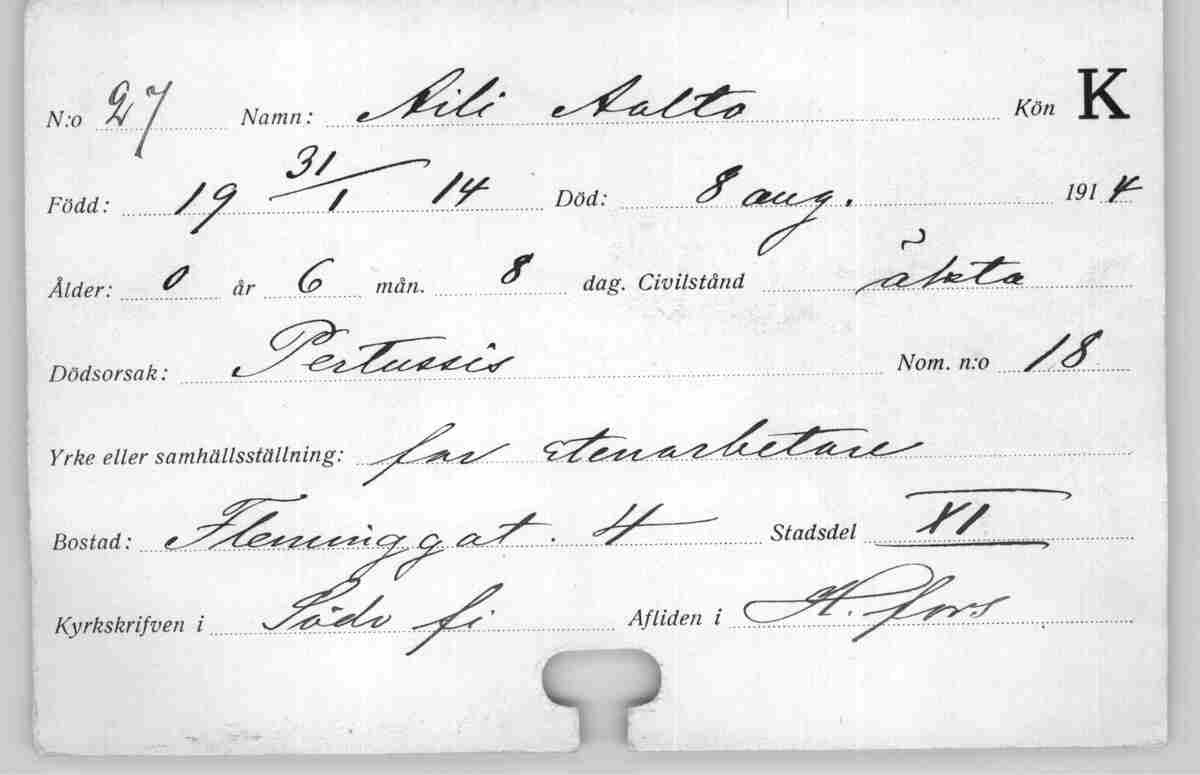 N:o 27 Namn: Aili Aalto Kön K
Född: 19 31/1 14 Död: 8 aug. 1914
Ålder: 0 år 6 mån. 8 dag. Civilstånd äkta
Dödsorsak: Pertussis Nom. n:o 18
Yrke eller samhällsställning: far stenarbetare
Bostad: Fleminggat. 4 Stadsdel XI
Kyrkskrifven i Södr fi Afliden i H.fors